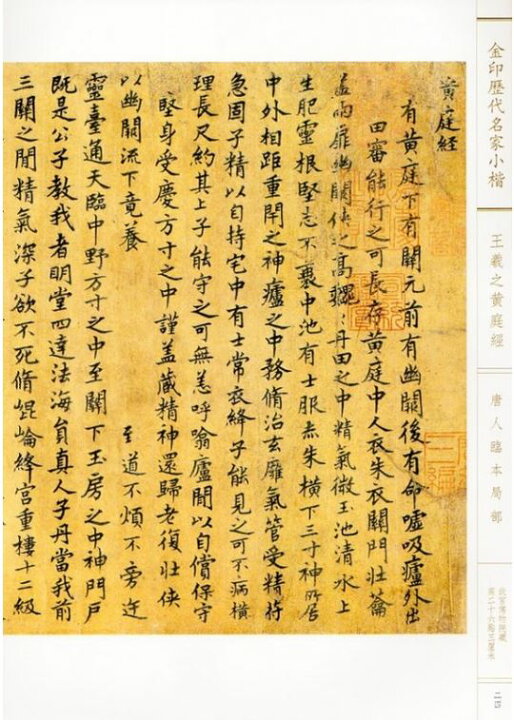 黃庭經
有黃庭下有關元前有幽闕後有命噓吸廬外出
田審能行之可長存黃庭中人衣朱衣關門壯籥
蓋兩扉幽闕俠之高巍:丹田之中精氣微玉池清水上
生肥靈根堅志不衰中池有士服赤朱橫下三寸神所居
中外相距重閇之神廬之中務脩治玄㢋氣管受精符
急固子精以自持宅中有士常衣絳子能見之可不病橫
理長尺約其上子能守之可無恙呼噏廬閒以自償保守
堅身受慶方寸之中謹蓋藏精神還歸老復壯俠
以幽闕流下竟養 至道不煩不旁迕
靈臺通天臨中野方寸之中至關下玉房之中神門戶
既是公子教我者明堂四達法海員真人子丹當我前
三關之閒精氣深子欲不死脩崐崘絳宮重樓十二級
金印歷代名家小楷
王羲之黃庭經
唐人臨本局部
故宮博物院藏
二四